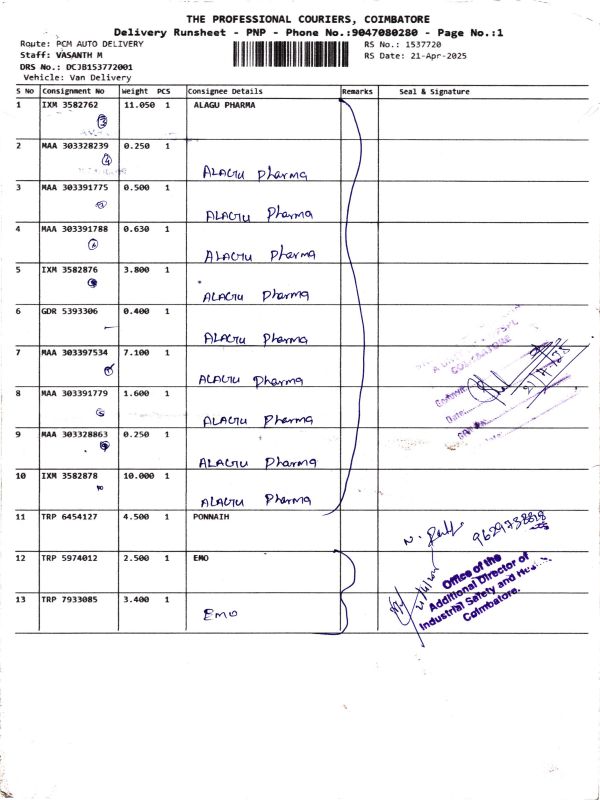 THE PROFESSIONAL COURIERS, COIMBATORE
Delivery Runsheet - PNP - Phone No.:9047080280 - Page No.:1
Route: PCM AUTO DELIVERY
RS No.: 1537720
Staff: VASANTH M
RS Date: 21-Apr-2025
DRS No.: DCJB153772001
Vehicle: Van Delivery
S No Consignment No Weight PCS Consignee Details Remarks Seal & Signature
1 IXM 3582762 11.050 1 ALAGU PHARMA
3
2 MAA 303328239 0.250 1
4
ALAGU Pharma
3 MAA 303391775 0.500 1
ALAGU Pharma
4 MAA 303391788 0.630 1
ALAGU Pharma
5 IXM 3582876 3.800 1
ALAGU Pharma
6 GDR 5393306 0.400 1
ALAGU Pharma
7 MAA 303397534 7.100 1
ALAGU Pharma
8 MAA 303391779 1.600 1
ALAGU Pharma
9 MAA 303328863 0.250 1
ALAGU Pharma
10 IXM 3582878 10.000 1
ALAGU Pharma
COIMBATORE
Date:
11 TRP 6454127 4.500 1 PONNAIH
9629738818
12 TRP 5974012 2.500 1 EMO
13 TRP 7933085 3.400 1
EMO
Office of the
Additional Director of
Industrial Safety and
Coimbatore.